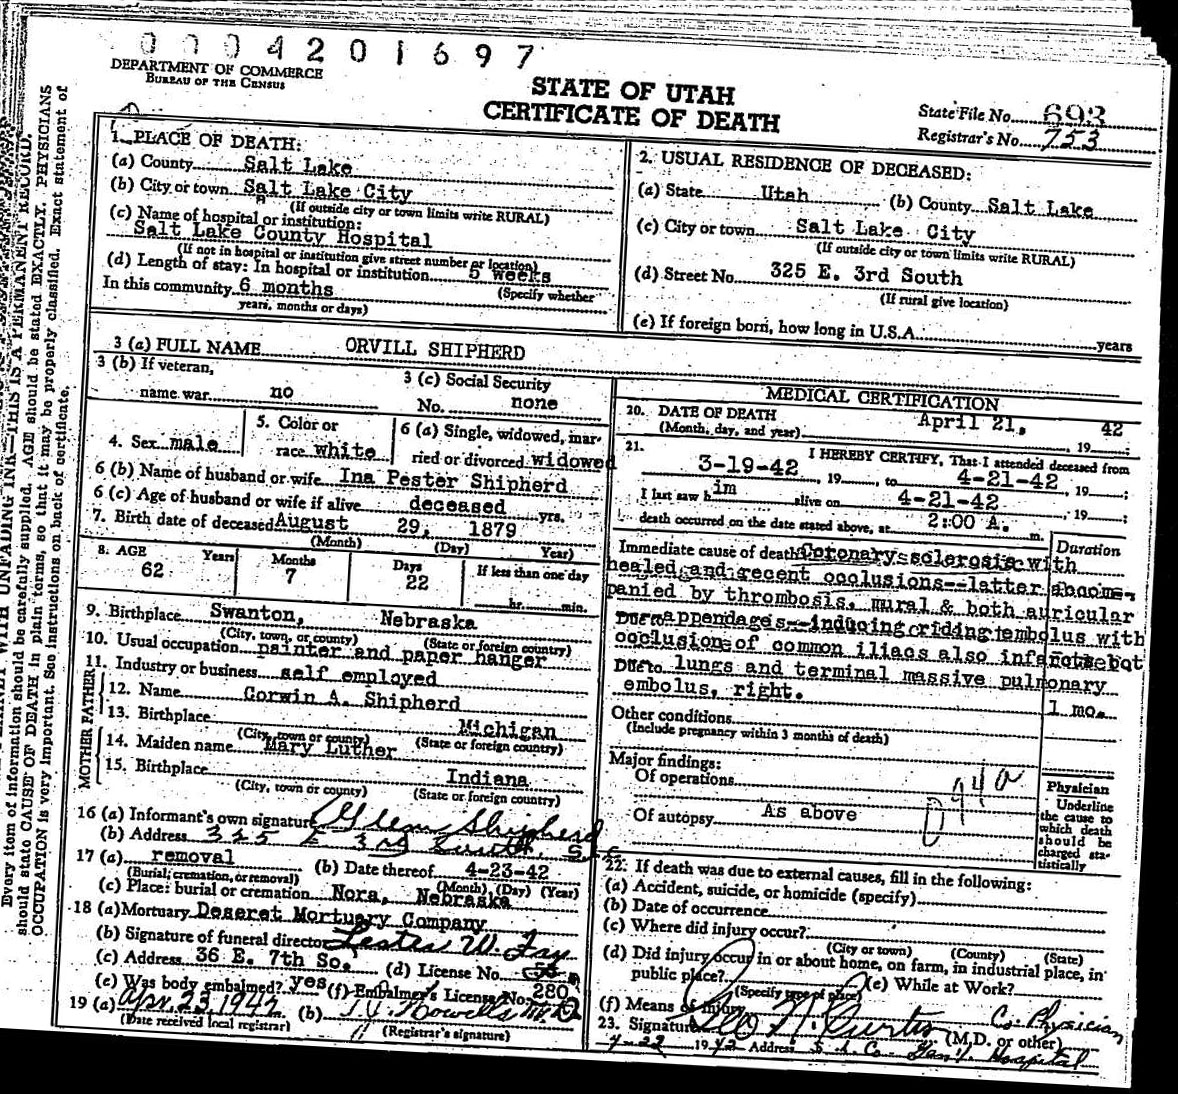 0004201697
DEPARTMENT OF COMMERCE
BUREAU OF THE CENSUS
STATE OF UTAH
CERTIFICATE OF DEATH
State File No. 693
Registrar's No. 753
Every item of information should be carefully supplied. AGE should be stated EXACTLY. PHYSICIANS
should state CAUSE OF DEATH in plain terms, so that it may be properly classified. Exact statement of
OCCUPATION is very important. See instructions on back of certificate.
WITH UNFADING INK—THIS IS A PERMANENT RECORD.
1. PLACE OF DEATH:
(a) County Salt Lake
(b) City or town Salt Lake City
(If outside city or town limits write RURAL)
(c) Name of hospital or institution:
Salt Lake County Hospital
(If not in hospital or institution give street number or location)
(d) Length of stay: In hospital or institution 5 weeks
(Specify whether
In this community 6 months
years, months or days)
2. USUAL RESIDENCE OF DECEASED:
(a) State Utah (b) County Salt Lake
(c) City or town Salt Lake City
(If outside city or town limits write RURAL)
(d) Street No. 325 E. 3rd South
(If rural give location)
(e) If foreign born, how long in U.S.A. years
3 (a) FULL NAME ORVILL SHIPHERD
3 (b) If veteran,
name war no
3 (c) Social Security
No. none
4. Sex male
5. Color or
race white
6 (a) Single, widowed, mar-
ried or divorced widowed
6 (b) Name of husband or wife Ina Pester Shipherd
6 (c) Age of husband or wife if alive deceased yrs.
7. Birth date of deceased August 29, 1879
(Month) (Day) Year)
8. AGE Years Months Days If less than one day
62 7 22 hr. min.
9. Birthplace Swanton, Nebraska
(City, town, or county) (State or foreign country)
10. Usual occupation painter and paper hanger
11. Industry or business self employed
FATHER
12. Name Corwin A. Shipherd
13. Birthplace Michigan
(City, town or county) (State or foreign country)
MOTHER
14. Maiden name Mary Luther
15. Birthplace Indiana
(City, town or county) (State or foreign country)
16 (a) Informant's own signature Glenn Shipherd
(b) Address 325 E 3rd South, SLC
17 (a) removal (b) Date thereof 4-23-42
(Burial, cremation, or removal) (Month) (Day) (Year)
(c) Place: burial or cremation Nora, Nebraska
18 (a) Mortuary Deseret Mortuary Company
(b) Signature of funeral director Lester W. Fay
(c) Address 36 E. 7th So. (d) License No.
(e) Was body embalmed? yes (f) Embalmer's License No. 280
19 (a) Apr. 23, 1942 (b) Howells M.D.
(Date received local registrar) (Registrar's signature)
MEDICAL CERTIFICATION
20. DATE OF DEATH April 21, 42
(Month, day, and year) , 19
21. I HEREBY CERTIFY, That I attended deceased from
3-19-42 , 19 , to 4-21-42 , 19 ;
I last saw h im alive on 4-21-42 , 19 ;
death occurred on the date stated above, at 2:00 A. m.
Duration
Immediate cause of death Coronary sclerosis with
healed and recent occlusions--latter accom-
panied by thrombosis, mural & both auricular
Due to appendages--inducing riding embolus with
occlusion of common iliacs also infarcts bot
Due to lungs and terminal massive pulmonary
embolus, right. 1 mo.
Other conditions
(Include pregnancy within 3 months of death)
Major findings:
Of operations
Of autopsy As above
94a
Physician
Underline
the cause to
which death
should be
charged sta-
tistically
22. If death was due to external causes, fill in the following:
(a) Accident, suicide, or homicide (specify)
(b) Date of occurrence
(c) Where did injury occur?
(City or town) (County) (State)
(d) Did injury occur in or about home, on farm, in industrial place, in
public place? (e) While at Work?
(Specify type of place)
(f) Means of injury
23. Signature Leo N. Curtis Co. Physician
(M.D. or other)
4-22 1942 Address S. L. Co. Gen'l Hospital